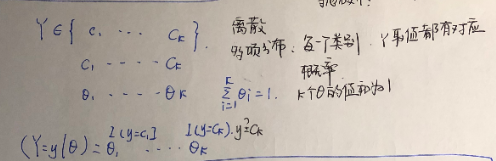 Y∈{ c₁ ··· Cₖ}. 离散
多项分布：每一个类别，Y取值都有对应
c₁ ---- Cₖ 概率
θ₁ ---- θₖ ∑ᵢ₌₁ᴷ θᵢ=1. K个θ的值和为1
(Y=y|θ)=θ₁^{I(y=c₁)} ---- θₖ^{I(y=Cₖ)}. y?=Cₖ